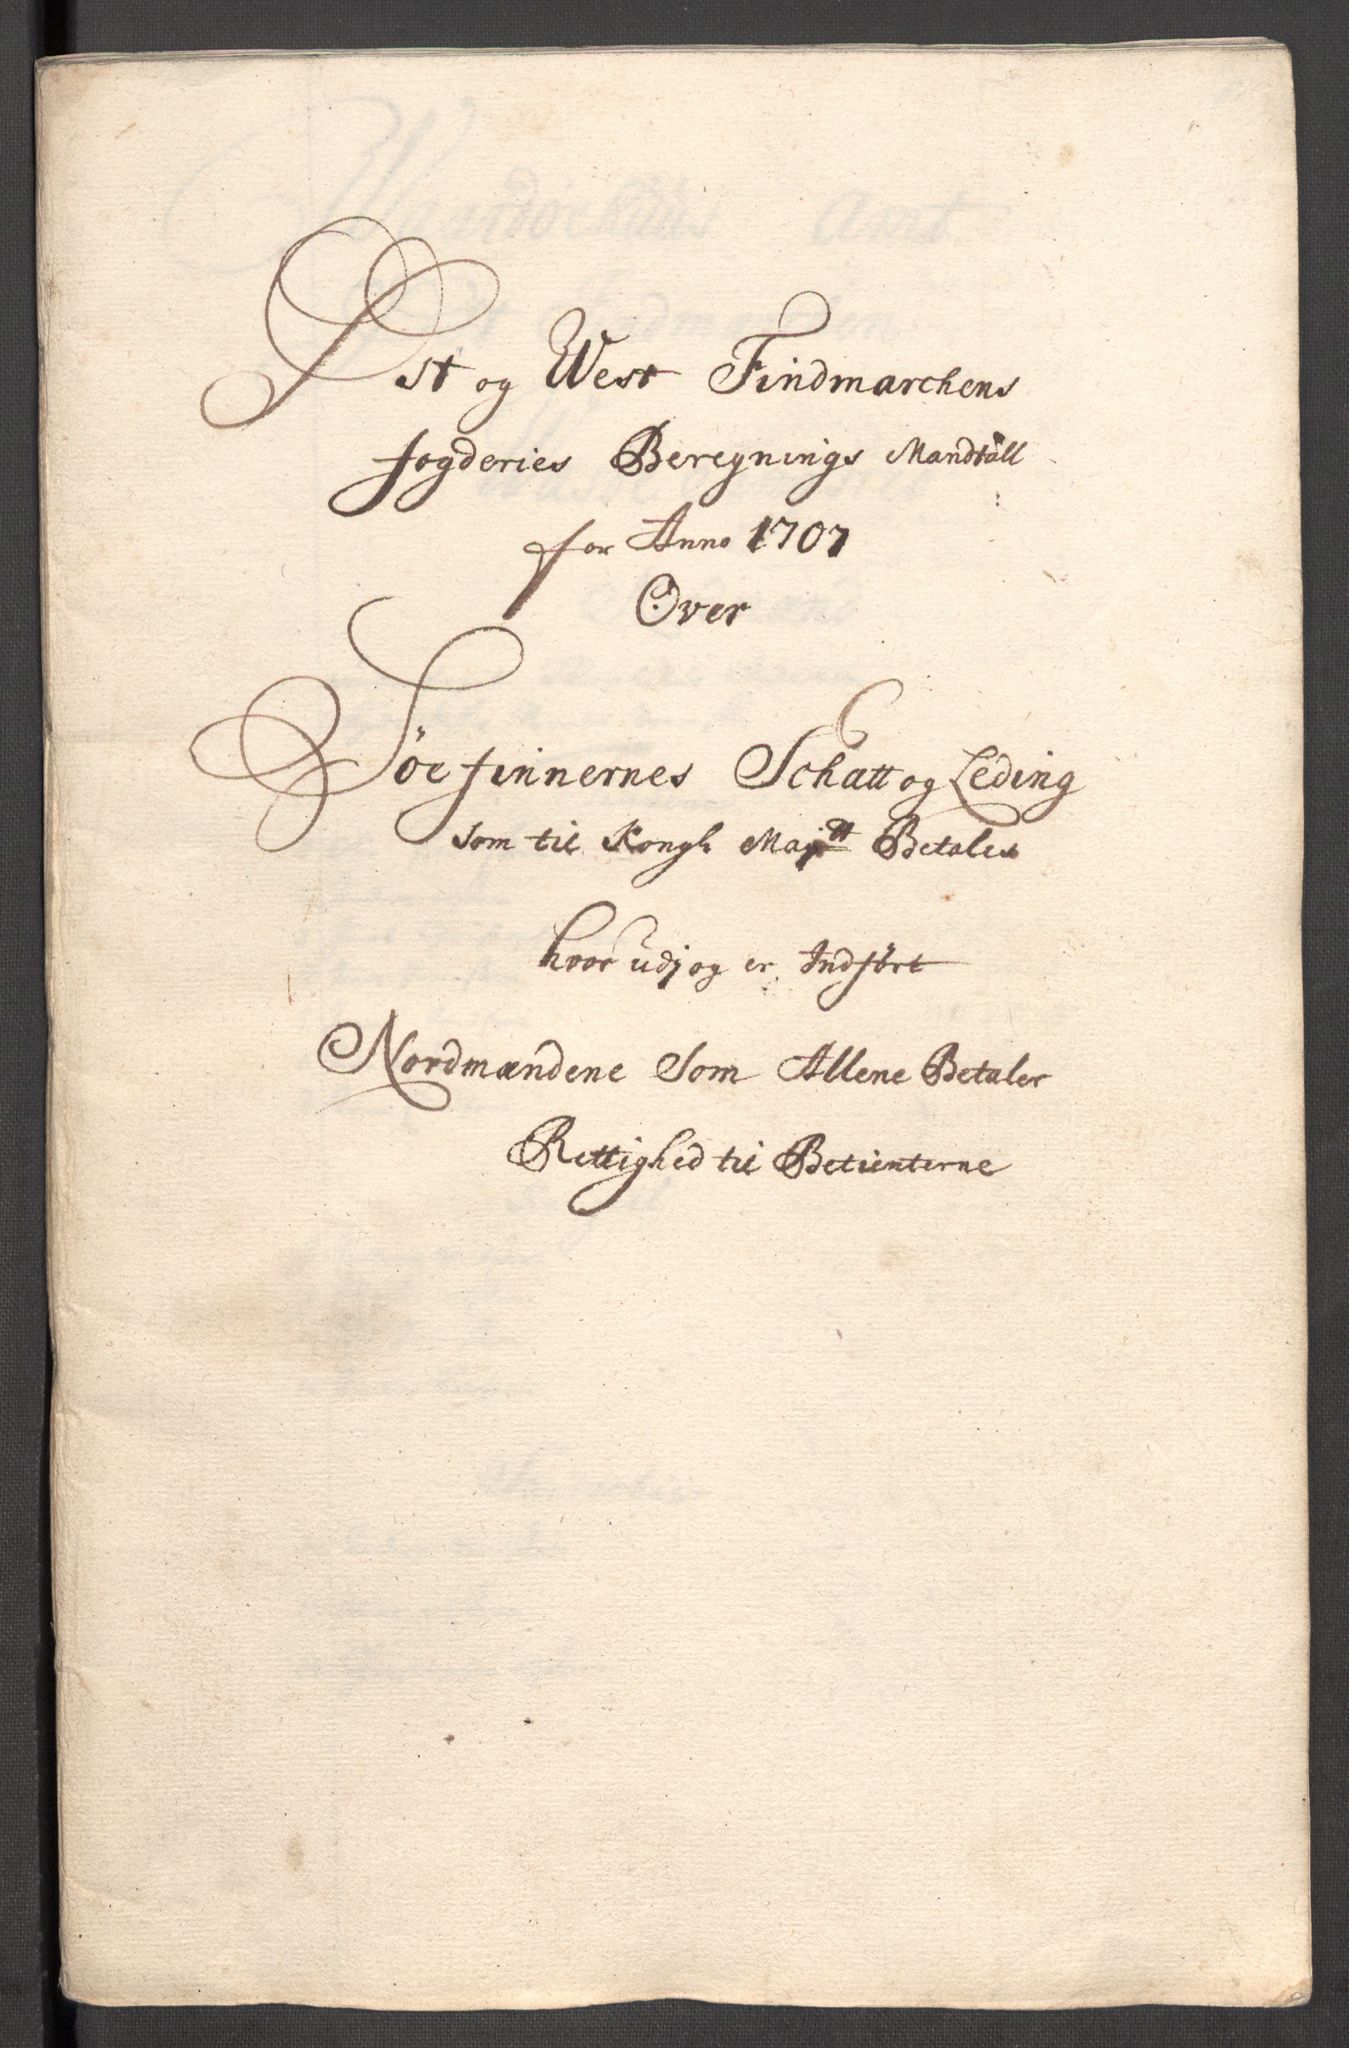 Øst og West Findmarchens
fogderies Beregnings Mandtall
for Anno 1707
Over
Søefinnernes Schatt og Leding
som til Kongl Maytt Betales
hvor udj og er Indført
Nordmændene Som Allene Betaler
Rettighed til Betienterne